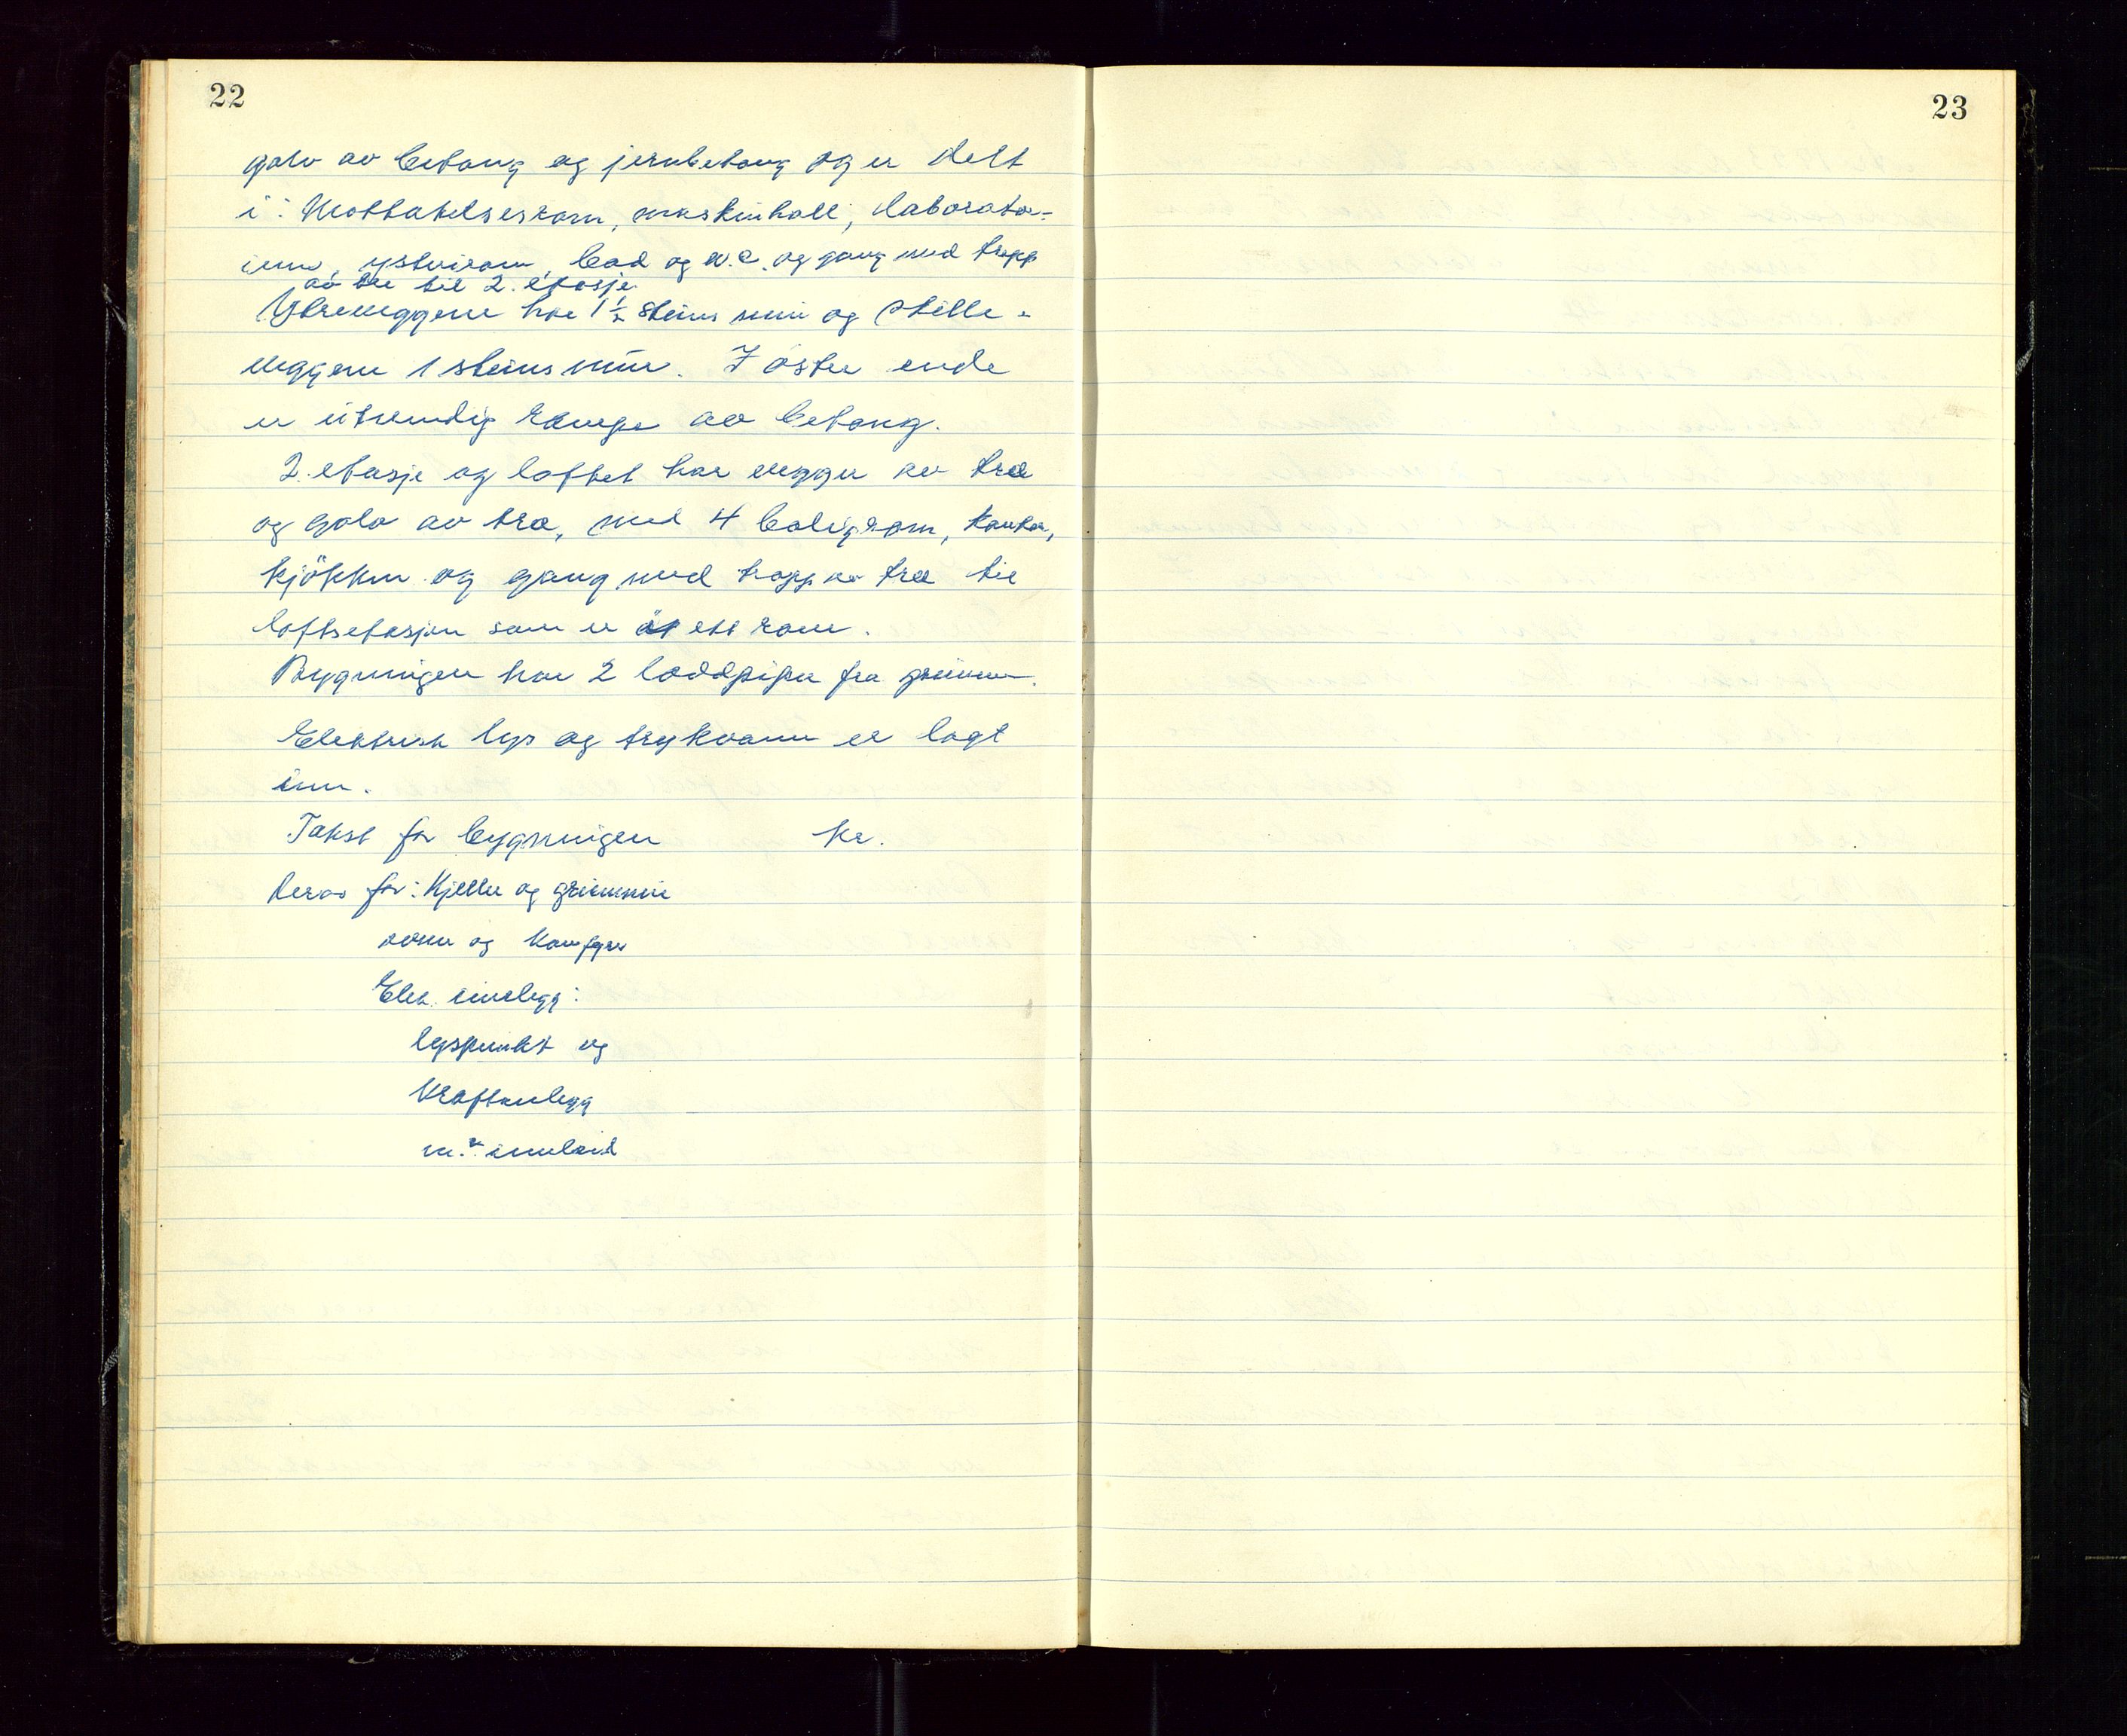 22
golv av betong og jernbetong og er delt
i: Mottakelsesrom, maskinhall, laborato-
rium, ysteirom, bad og w.c. og gang med trapp
av tre til 2. etasje.
Ytreveggene har 1½ steins mur og skille-
veggene 1 steins mur. I østre ende
er utvendig rampe av betong.
2. etasje og loftet har vegger av tre
og golv av tre, med 4 beligrom, kontor,
kjøkken og gang med trapp av tre til
loftsetasjen som er ett rom.
Bygningen har 2 loddpiper fra grunnen.
Elektrisk lys og trykkvann er lagt
inn.
Takst for bygningen kr.
herav for: Kjeller og grunnmur
ovner og komfyrer
Elek. innlegg:
lyspunkt og
Kraftanlegg
m. innlaid
23